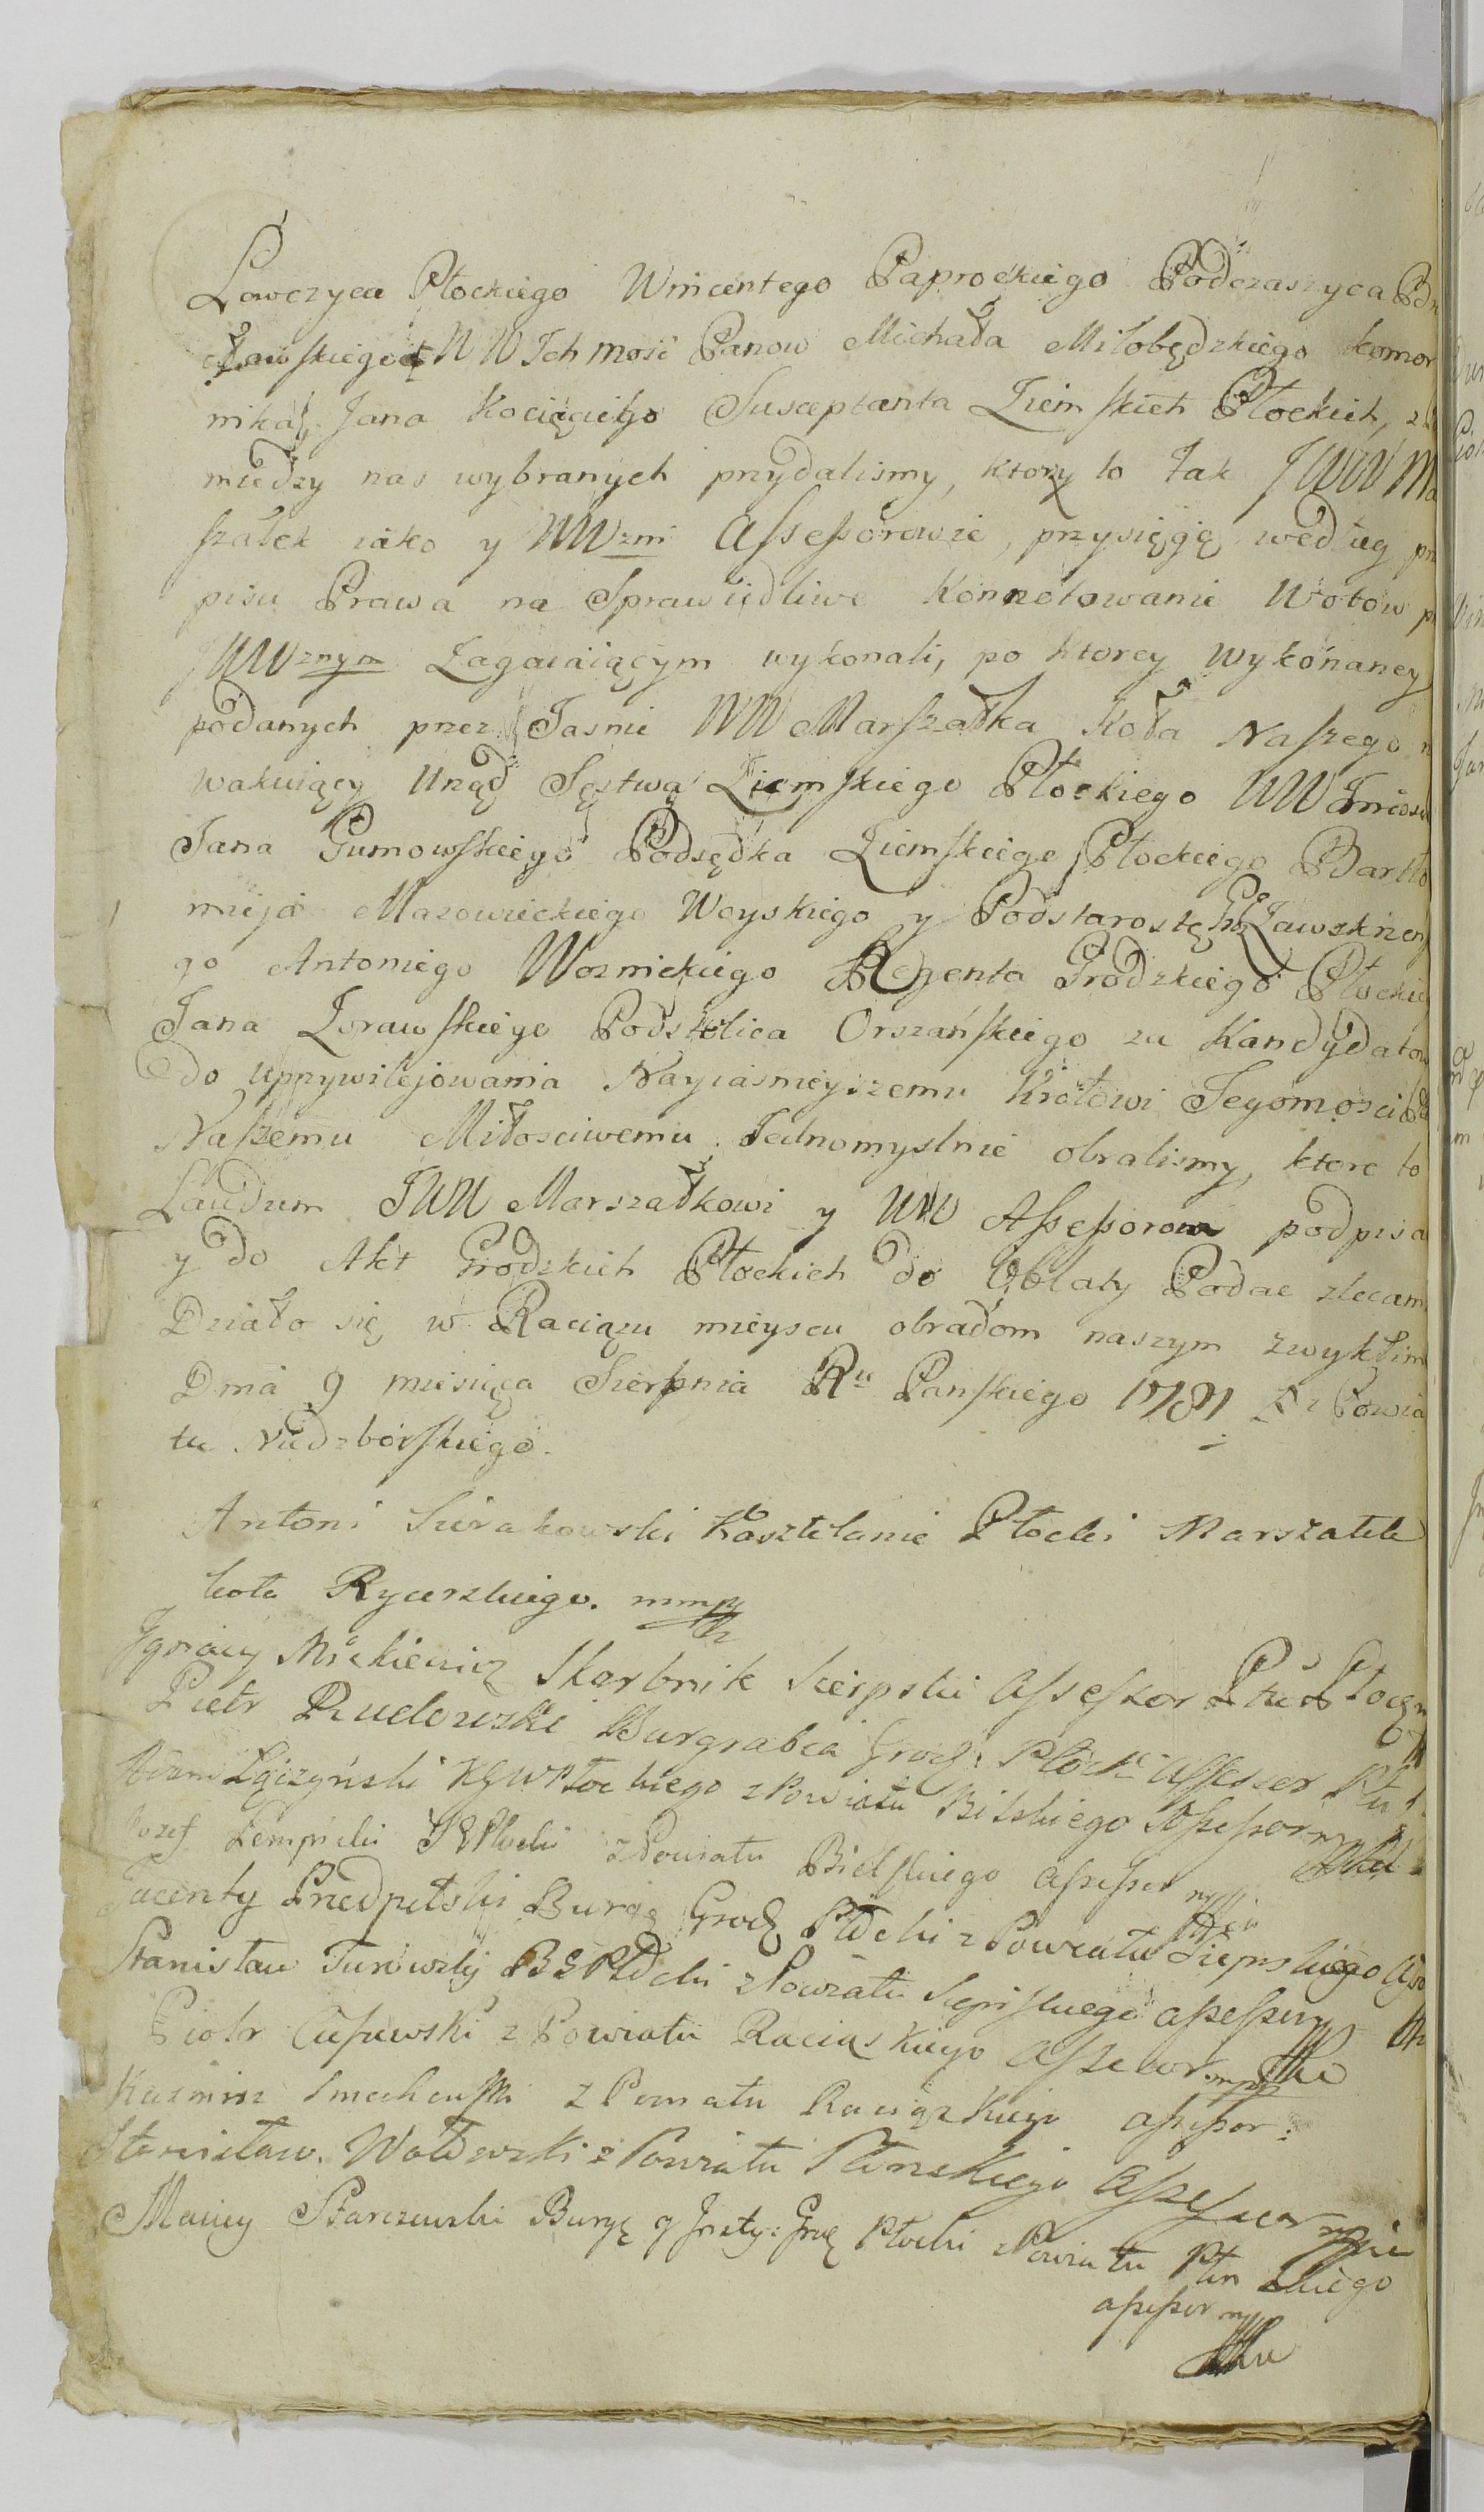 Łowczyca Płockiego Wincentego Paprockiego Podczaszyca
WW Ich Mosć Panow Michała Miłobędzkiego Komor
nika, Jana Kocięckiego Susceptanta Ziemskich Płockich, z
miedzy nas wybranych przydalismy, ktorzy to Jak JWW Ma
szałek iako y WWzni Assessorowie, przysięgę według prze
pisu Prawa na Sprawiedliwe Konnotowanie Wotow p
JWWznym Zagaiaiącym wykonali, po ktorey wykonaney
podanych przez Jasnie WW Marszałka Koła Naszego n
wakuiący Urząd Sęstwa Ziemskiego Płockiego WW
Jana Gumowskiego Podsędka Ziemskiego Płockiego Bartło
mieja Mazowieckiego Woyskiego y Podstarostę Zawskrzen
go Antoniego Woznickiego Regenta Grodzkiego Płockie
Jana Zorawskiego Podstolica Orszańskiego za Kandydatow
do uprzywilejowania Nayiasnieyszemu Krolowi Jegomosci
Naszemu Miłosciwemu Jednomyslnie obralismy, ktore to
Laudum JWW Marszałkowi y WW Assessorom podpisa
y do Akt Grodzkich Płockich do Oblaty Podac zlecam
Działo się w Raciązu mieyscu obradom naszym zwykłim
Dnia 9 miesiąca Sierpnia Ru Panskiego 1781 Z Powia
tu Niedzborskiego.
Antoni Sierakowski Kasztelanic Płocki Marszałek
koła Rycerskiego. mmp
Ignacy Mickiewicz Skarbnik Sierpski Assessor Ptu
Piotr Rudowski Burgrabia Grodz: Płock: Assessor Ptu
Adam Łączyński Płockiego z Powiatu Bilskiego Assessor
Jozef Łempicki Płocki z Powiatu Bielskiego Assessor
Jacenty Przedpełski Burg: Grodz Płocki z Powiatu Sierpskiego
Stanisław Turowski Płocki z Powiatu Assessor
Piotr z Powiatu Raciąskiego Assessor
Kazmirz z Powiatu Raciązkiego assessor:
Stanisław z Powiatu Płonskiego Assessor
Maciey Starczewski Burg: Płocki z Powiatu Płonskiego
assessor